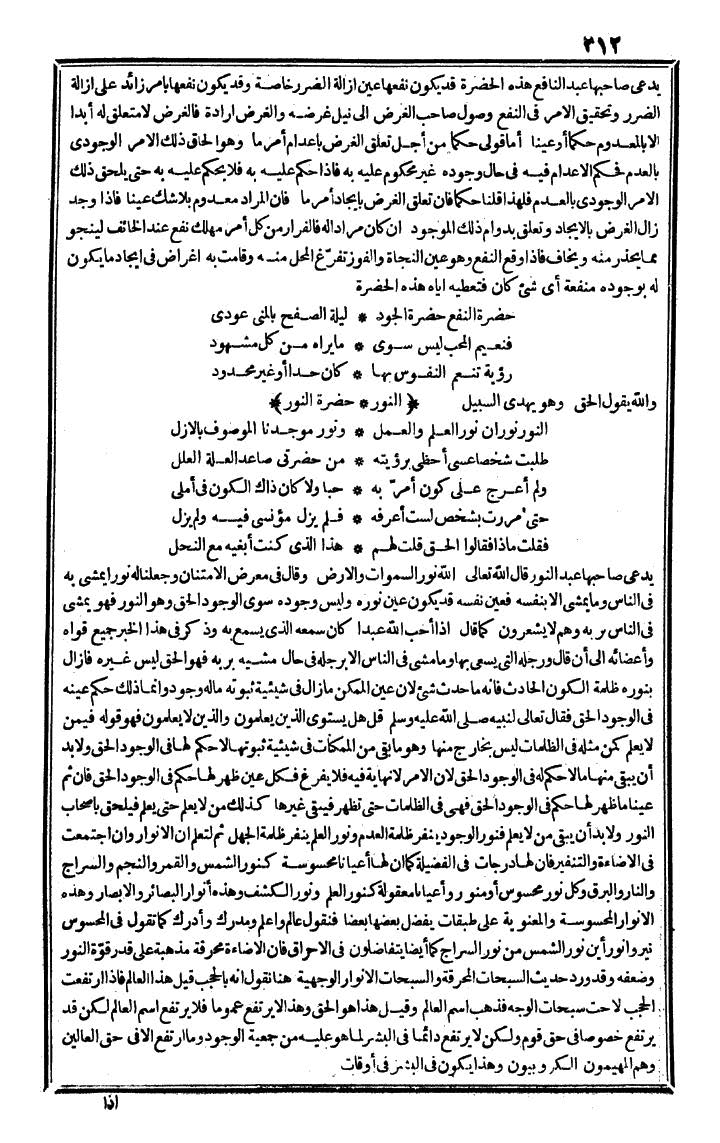 ٣١٢
يدعى صاحبها عبد النافع هذه الحضرة قد يكون نفعها عين ازالة الضرر خاصة وقد يكون نفعها بامر زائد على ازالة
الضرر وتحقيق الامر فى النفع وصول صاحب الغرض الى نيل غرضه والغرض ارادة فالغرض لا متعلق له أبدا
الا بالمعدوم حكما أو عينا أما قولى حكما من أجل تعلق الغرض باعدام أمر ما وهو الحاق ذلك الامر الوجودى
بالعدم فحكم الاعدام فيه فى حال وجوده غير محكوم عليه به فاذا حكم عليه به فلا يحكم عليه به حتى يلحق ذلك
الامر الوجودى بالعدم فلهذا قلنا حكما فان تعلق الغرض بايجاد أمر ما فان المراد معدوم بلا شك عينا فاذا وجد
زال الغرض بالايجاد وتعلق بدوام ذلك الموجود ان كان مراداله فالفرار من كل أمر مهلك نفع عند الخائف لينجو
مما يحذر منه ويخاف فاذا وقع النفع وهو عين النجاة والفوز تفرّغ المحل منه وقامت به اغراض فى ايجاد ما يكون
له بوجوده منفعة أى شئ كان فتعطيه اياه هذه الحضرة
حضرة النفع حضرة الجود * ليلة الصفح بالمنى عودى
فنعيم المحب ليس سوى * ما يراه من كل مشهود
رؤية تنعم النفوس بها * كان حدا أو غير محدود
والله يقول الحق وهو يهدى السبيل ﴿النور * حضرة النور﴾
النور نوران نور العلم والعمل * ونور موجدنا الموصوف بالازل
طلبت شخصا عسى أحظى برؤيته * من حضرتى صاعد العلة العلل
ولم أعرج على كون أمرّ به * حبا ولا كان ذاك الكون فى أملى
حتى مررت بشخص لست أعرفه * فلم يزل مؤنسى فيه ولم يزل
فقلت ماذا فقالوا الحق قلت لهم * هذا الذى كنت أبغيه مع النحل
يدعى صاحبها عبد النور قال الله تعالى الله نور السموات والارض وقال فى معرض الامتنان وجعلنا له نورا يمشى به
فى الناس وما يمشى الا بنفسه فعين نفسه قد يكون عين نوره وليس وجوده سوى الوجود الحق وهو النور فهو يمشى
فى الناس بربه وهم لا يشعرون كما قال اذا أحب الله عبدا كان سمعه الذى يسمع به وذكر فى هذا الخبر جميع قواه
وأعضائه الى أن قال ورجله التى يسعى بها وما مشى فى الناس الا برجله فى حال مشيه بربه فهو الحق ليس غيره فازال
بنوره ظلمة الكون الحادث فانه ما حدث شئ لان عين الممكن ما زال فى شيئية ثبوته ماله وجود وانما ذلك حكم عينه
فى الوجود الحق فقال تعالى لنبيه صلى الله عليه وسلم قل هل يستوى الذين يعلمون والذين لا يعلمون فهو قوله فيمن
لا يعلم كمن مثله فى الظلمات ليس بخارج منها وهو ما بقى من الممكنات فى شيئية ثبوتها لا حكم لها فى الوجود الحق ولا بد
أن يبقى منها ما لا حكم له فى الوجود الحق لان الامر لا نهاية فيه فلا يفرغ فكل عين ظهر لها حكم فى الوجود الحق فان ثم
عينا ما ظهر لها حكم فى الوجود الحق فهى فى الظلمات حتى تظهر فيبقى غيرها كذلك من لا يعلم حتى يعلم فيلحق باصحاب
النور ولا بد أن يبقى من لا يعلم فنور الوجود ينفر ظلمة العدم ونور العلم ينفر ظلمة الجهل ثم لتعلم ان الانوار وان اجتمعت
فى الاضاءة والتنفير فان لها درجات فى الفضيلة كما ان لها أعيانا محسوسة كنور الشمس والقمر والنجم والسراج
والنار والبرق وكل نور محسوس أو منور وأعيانا معقولة كنور العلم ونور الكشف وهذه أنوار البصائر والابصار وهذه
الانوار المحسوسة والمعنوية على طبقات يفضل بعضها بعضا فنقول عالم واعلم ومدرك وأدرك كما تقول فى المحسوس
نير وانور أين نور الشمس من نور السراج كما أيضا يتفاضلون فى الاحراق فان الاضاءة محرقة مذهبة على قدر قوّة النور
وضعفه وقد ورد حديث السبحات المحرقة والسبحات الانوار الوجهية هنا نقول انه بالحجب قيل هذا العالم فاذا ارتفعت
الحجب لاحت سبحات الوجه فذهب اسم العالم وقيل هذا هو الحق وهذا لا يرتفع عموما فلا يرتفع اسم العالم لكن قد
يرتفع خصوصا فى حق قوم ولكن لا يرتفع دائما فى البشر لما هو عليه من جمعية الوجود وما ارتفع الا فى حق العالين
وهم المهيمون الكروبيون وهذا يكون فى البشر فى أوقات
اذا